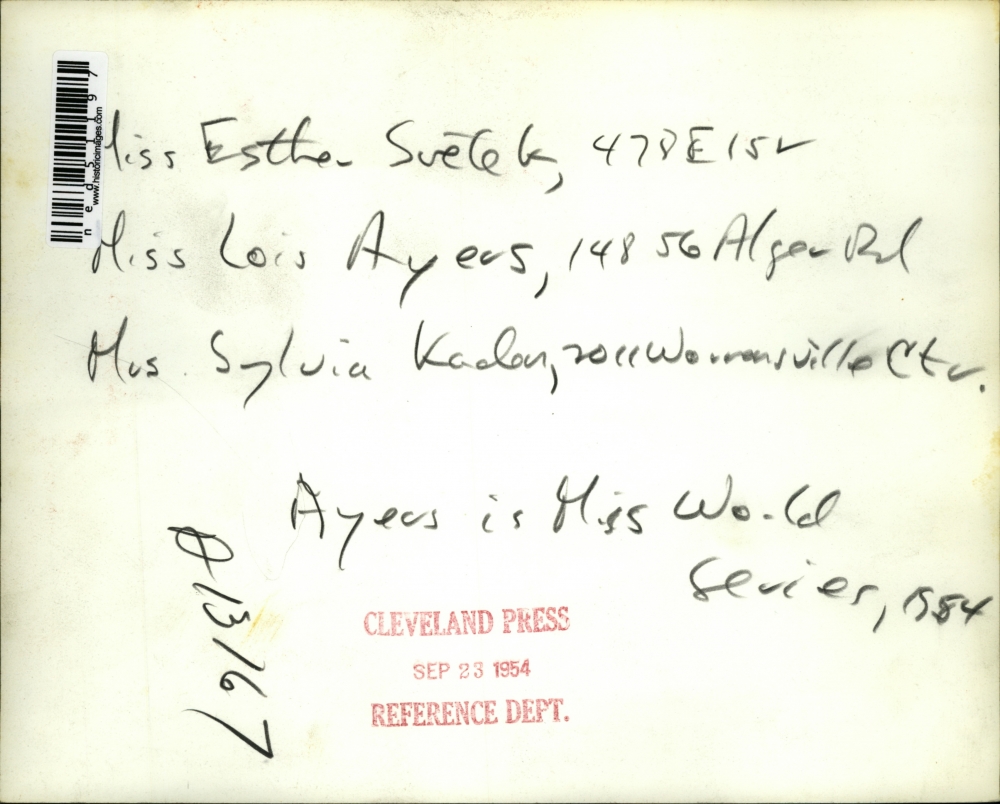 Miss Esther Svetek, 478 E 152
Miss Lois Ayers, 14856 Alger Rd
Mrs. Sylvia Kadan, 2011 Warrensville Ctr.
Ayers is Miss World
Series, 1954
13167
CLEVELAND PRESS
SEP 23 1954
REFERENCE DEPT.
www.historicimages.com